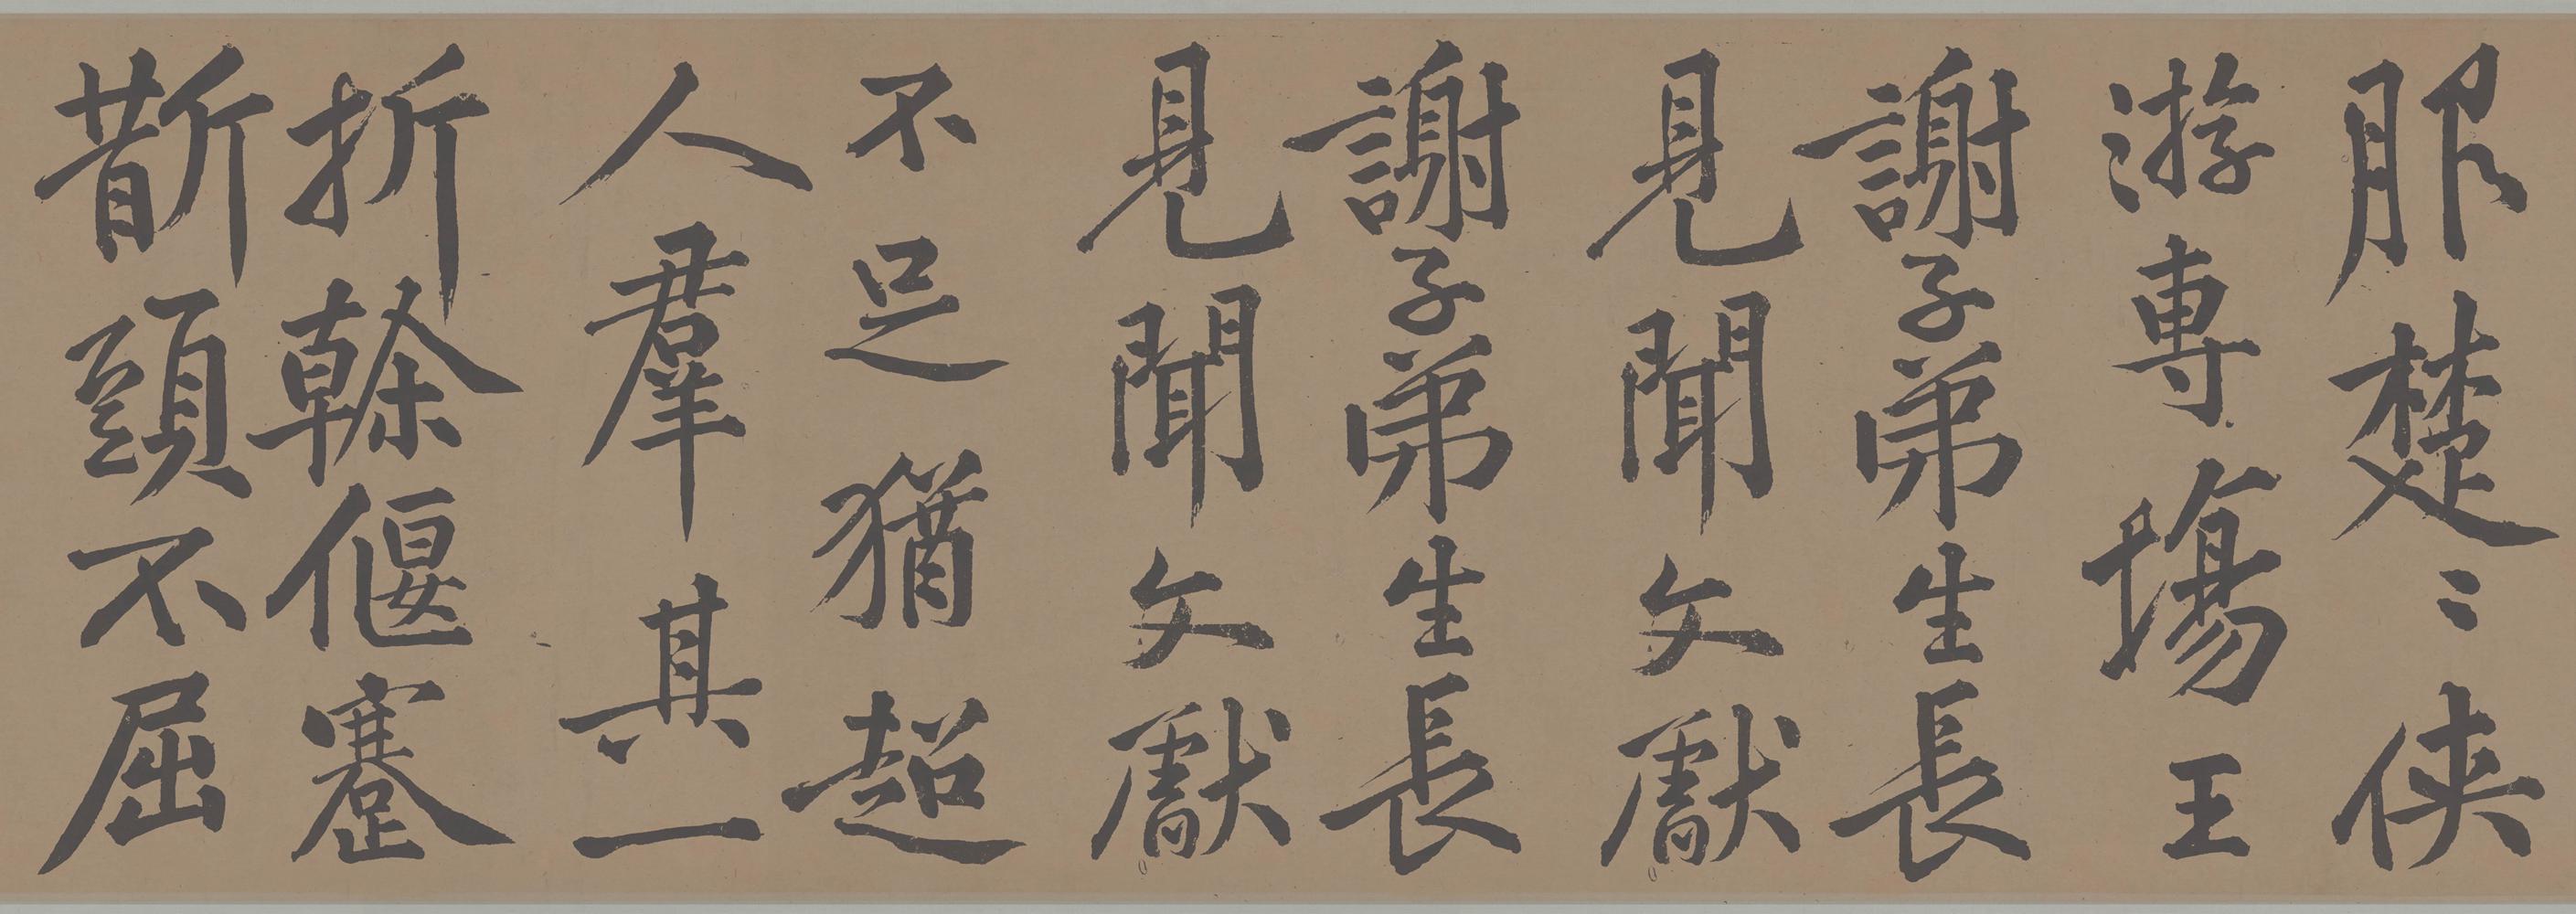 服楚〻俠
游專場王
謝子弟生長
見聞文獻
謝子弟生長
見聞文獻
不足猶超
人羣其一
折榦偃蹇
斮頭不屈